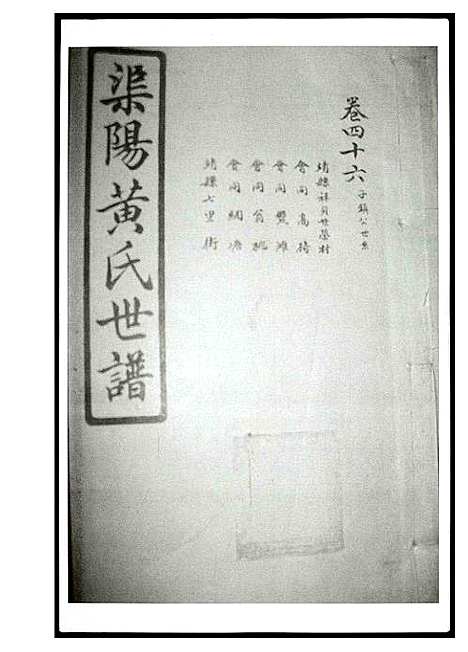 卷四十六 子鎮公世系
靖縣祥貝世榮村
會同高椅
會同雙灘
會同翁桃
會同綱塘
靖縣七里街
渠陽黃氏世譜